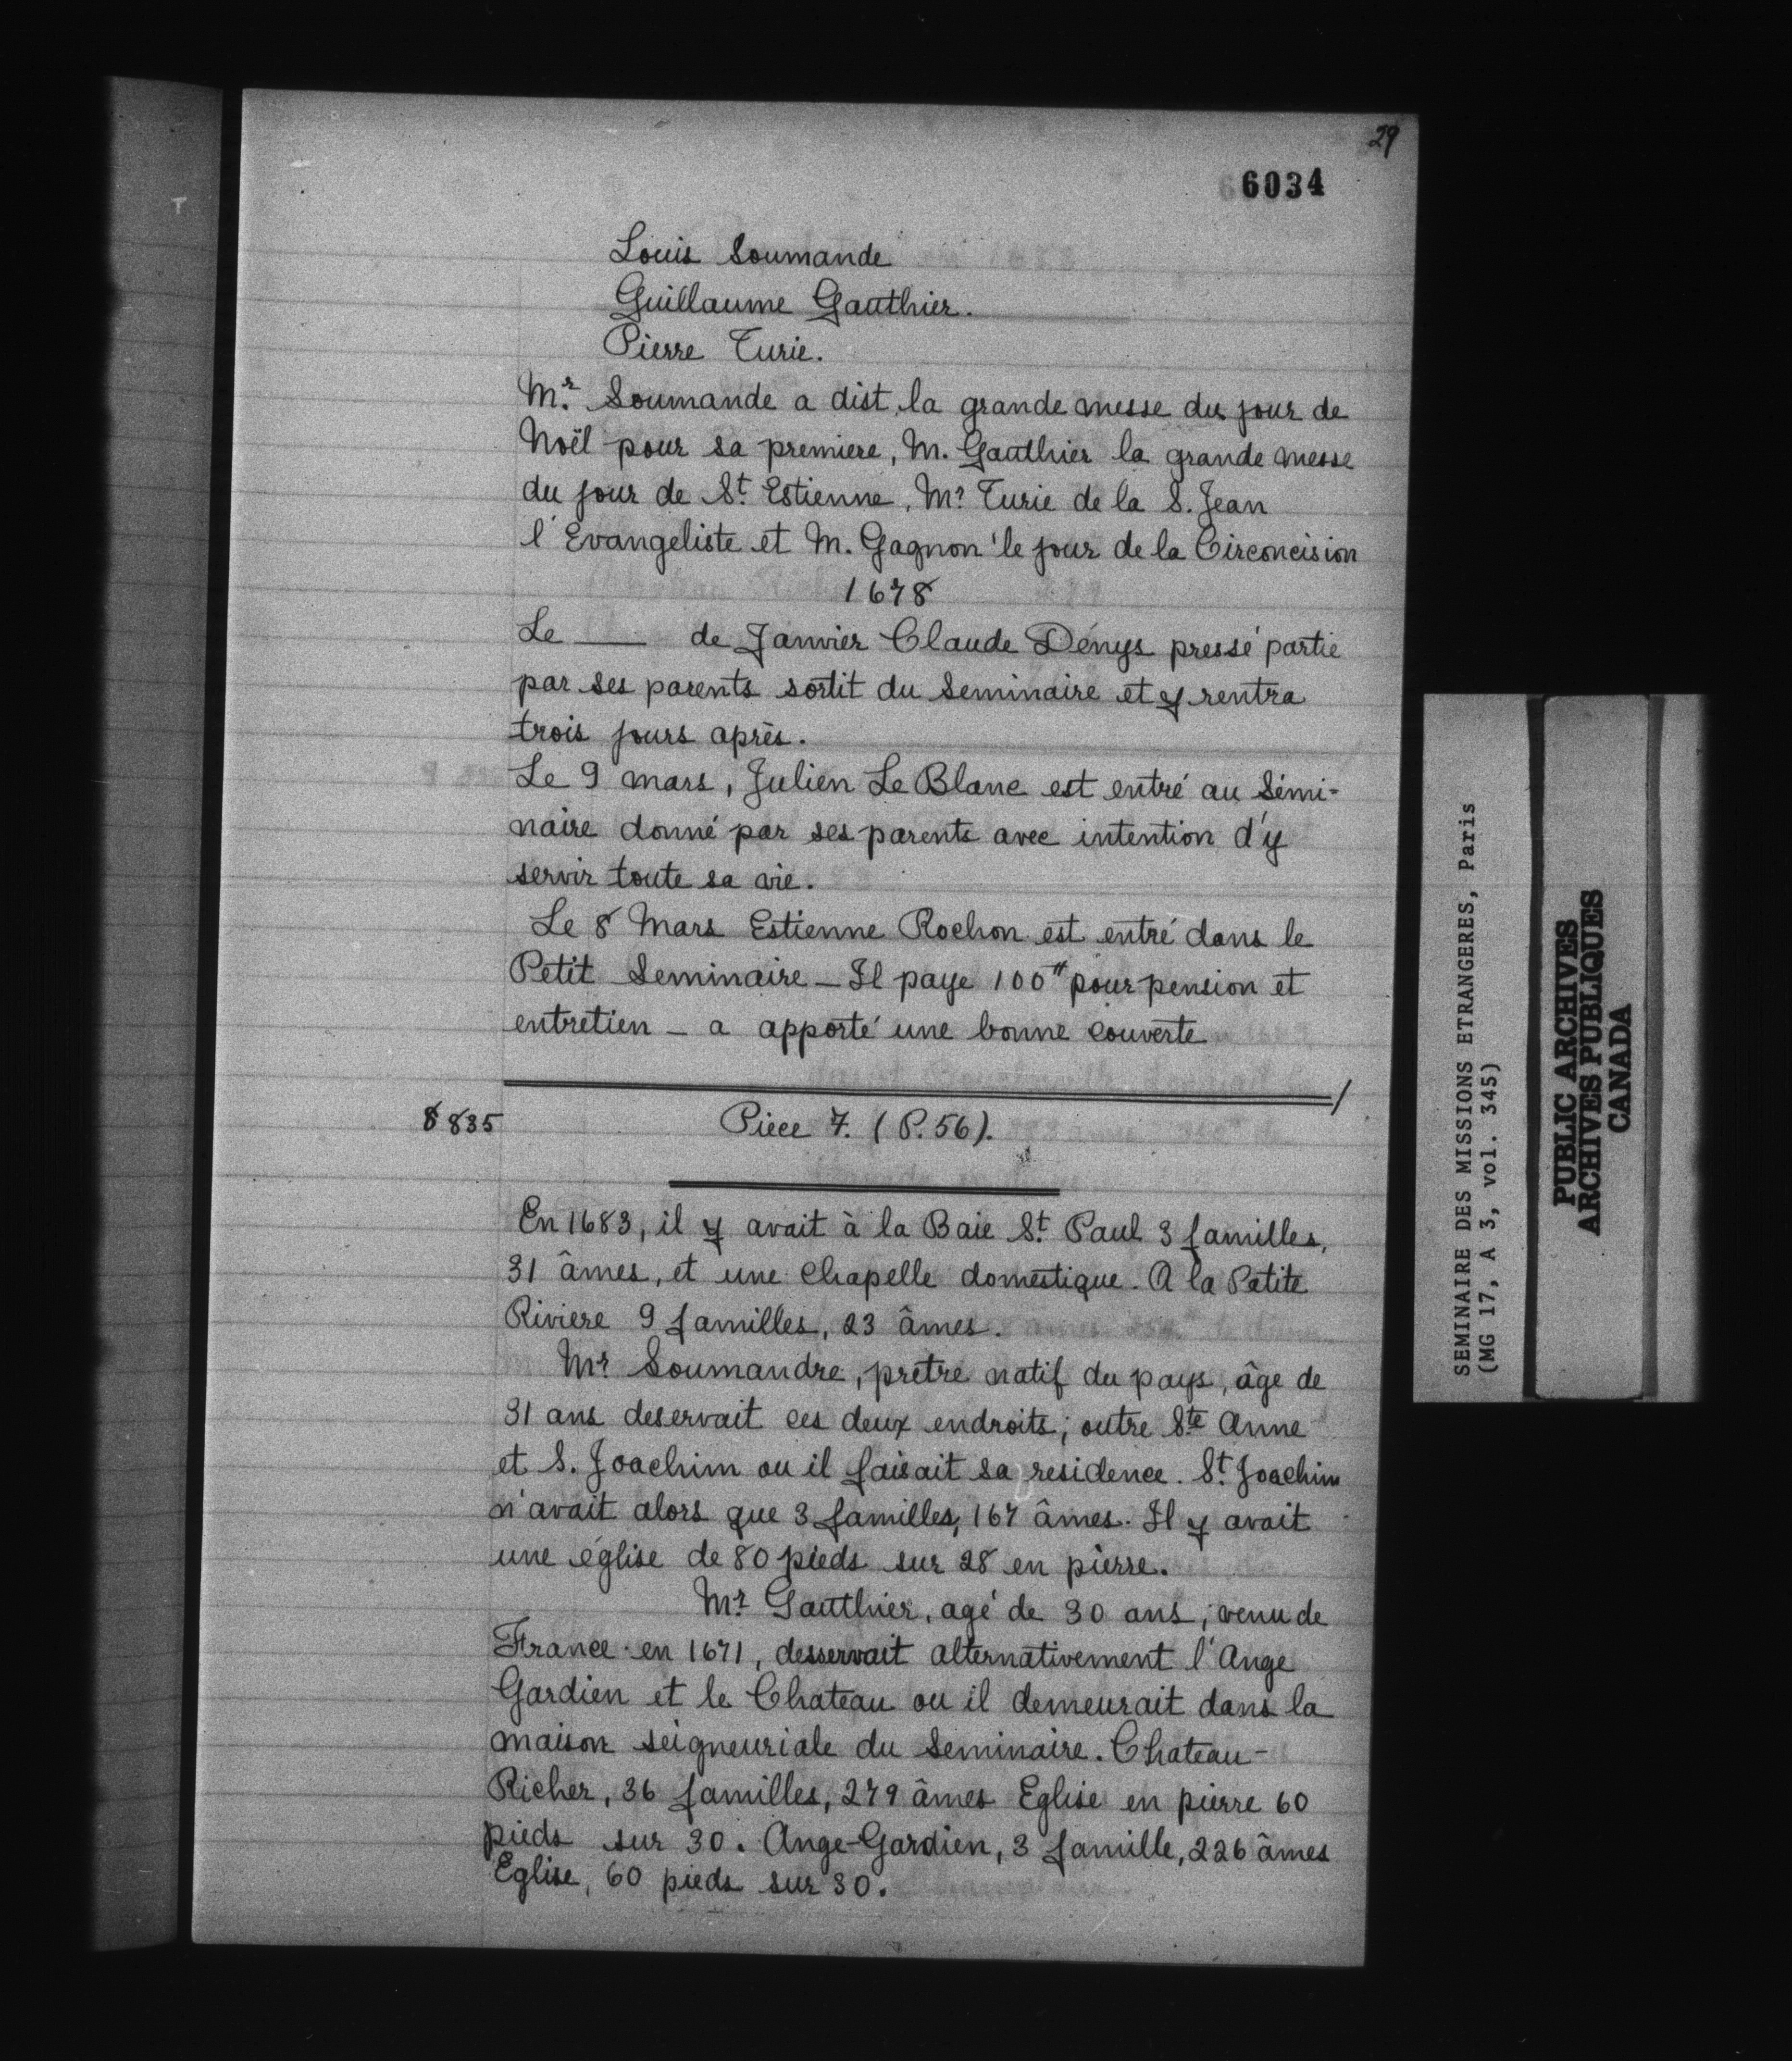 29
6034
Louis Soumande
Guillaume Gauthier.
Pierre Turie.
Mr. Soumande a dist la grande messe du jour de
Noël pour sa premiere, M. Gauthier la grande messe
du jour de St. Estienne, Mr. Turie de la S. Jean
l'Evangeliste et M. Gagnon le jour de la Circoncision
1678
Le —— de Janvier Claude Denys pressé partie
par ses parents sortit du Seminaire et y rentra
trois jours après.
Le 9 mars, Julien Le Blanc est entré au Sémi-
naire donné par ses parents avec intention d'y
servir toute sa vie.
Le 8 Mars Estienne Rochon est entré dans le
Petit Seminaire — Il paye 100# pour pension et
entretien — a apporté une bonne couverte
8835
Piece 7. (P. 56).
En 1683, il y avait à la Baie St. Paul 3 familles,
31 âmes, et une Chapelle domestique. A la Petite
Riviere 9 familles, 23 âmes.
Mr Soumandre, prêtre natif du pays, âge de
31 ans deservait ces deux endroits; outre Ste Anne
et S. Joachim ou il faisait sa residence. St. Joachim
n'avait alors que 3 familles, 167 âmes. Il y avait
une église de 80 pieds sur 28 en pierre.
Mr. Gauthier, agé de 30 ans, venu de
France en 1671, desservait alternativement l'Ange
Gardien et le Chateau ou il demeurait dans la
maison seigneuriale du Seminaire. Chateau-
Richer, 36 familles, 279 âmes Eglise en pierre 60
pieds sur 30. Ange-Gardien, 3 famille, 226 âmes
Eglise, 60 pieds sur 30.
SEMINAIRE DES MISSIONS ETRANGERES, Paris
(MG 17, A 3, vol. 345)
PUBLIC ARCHIVES
ARCHIVES PUBLIQUES
CANADA